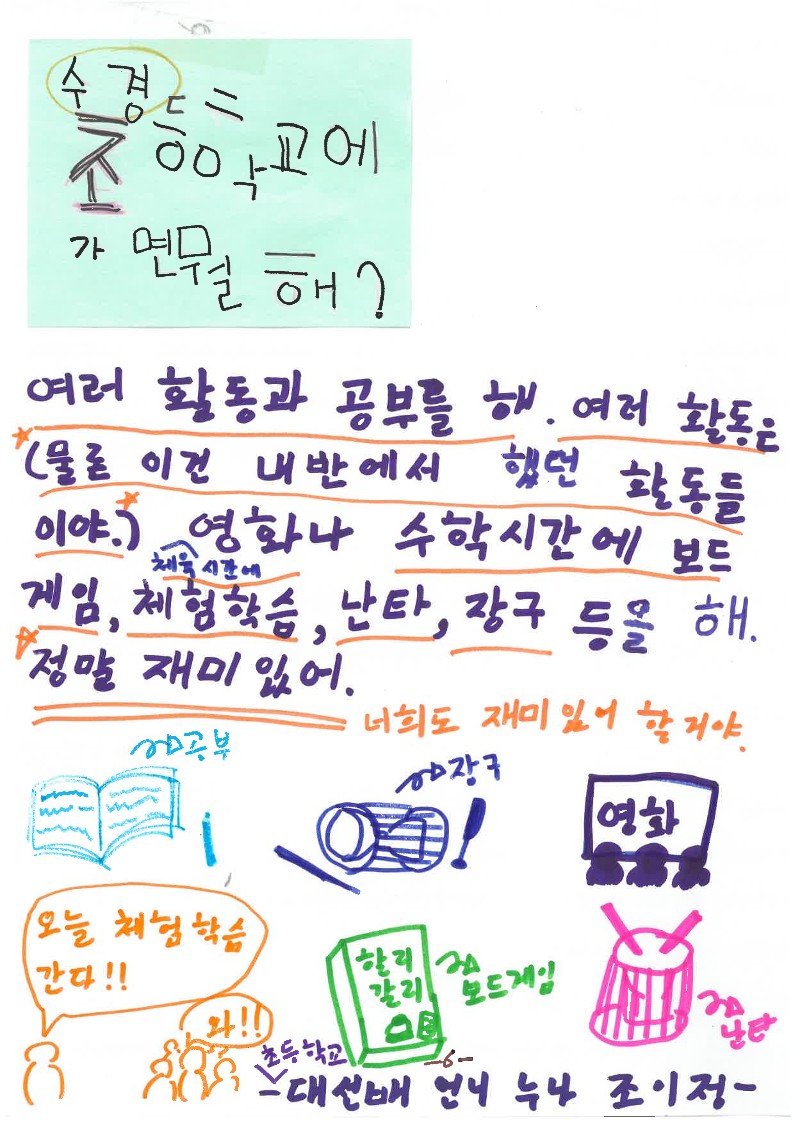 수경
초등학교에
가면 뭘 해?
여러 활동과 공부를 해. 여러 활동은
(물론 이건 내 반에서 했던 활동들
이야.) 영화나 수학시간에 보드
체육시간에
게임, 체험학습, 난타, 장구 등을 해.
정말 재미있어.
너희도 재미있어 할거야.
공부
장구
영화
오늘 체험학습
간다!!
와!!
할리
갈리
보드게임
난타
-6-
초등학교
-대선배 언니 누나 조이정-